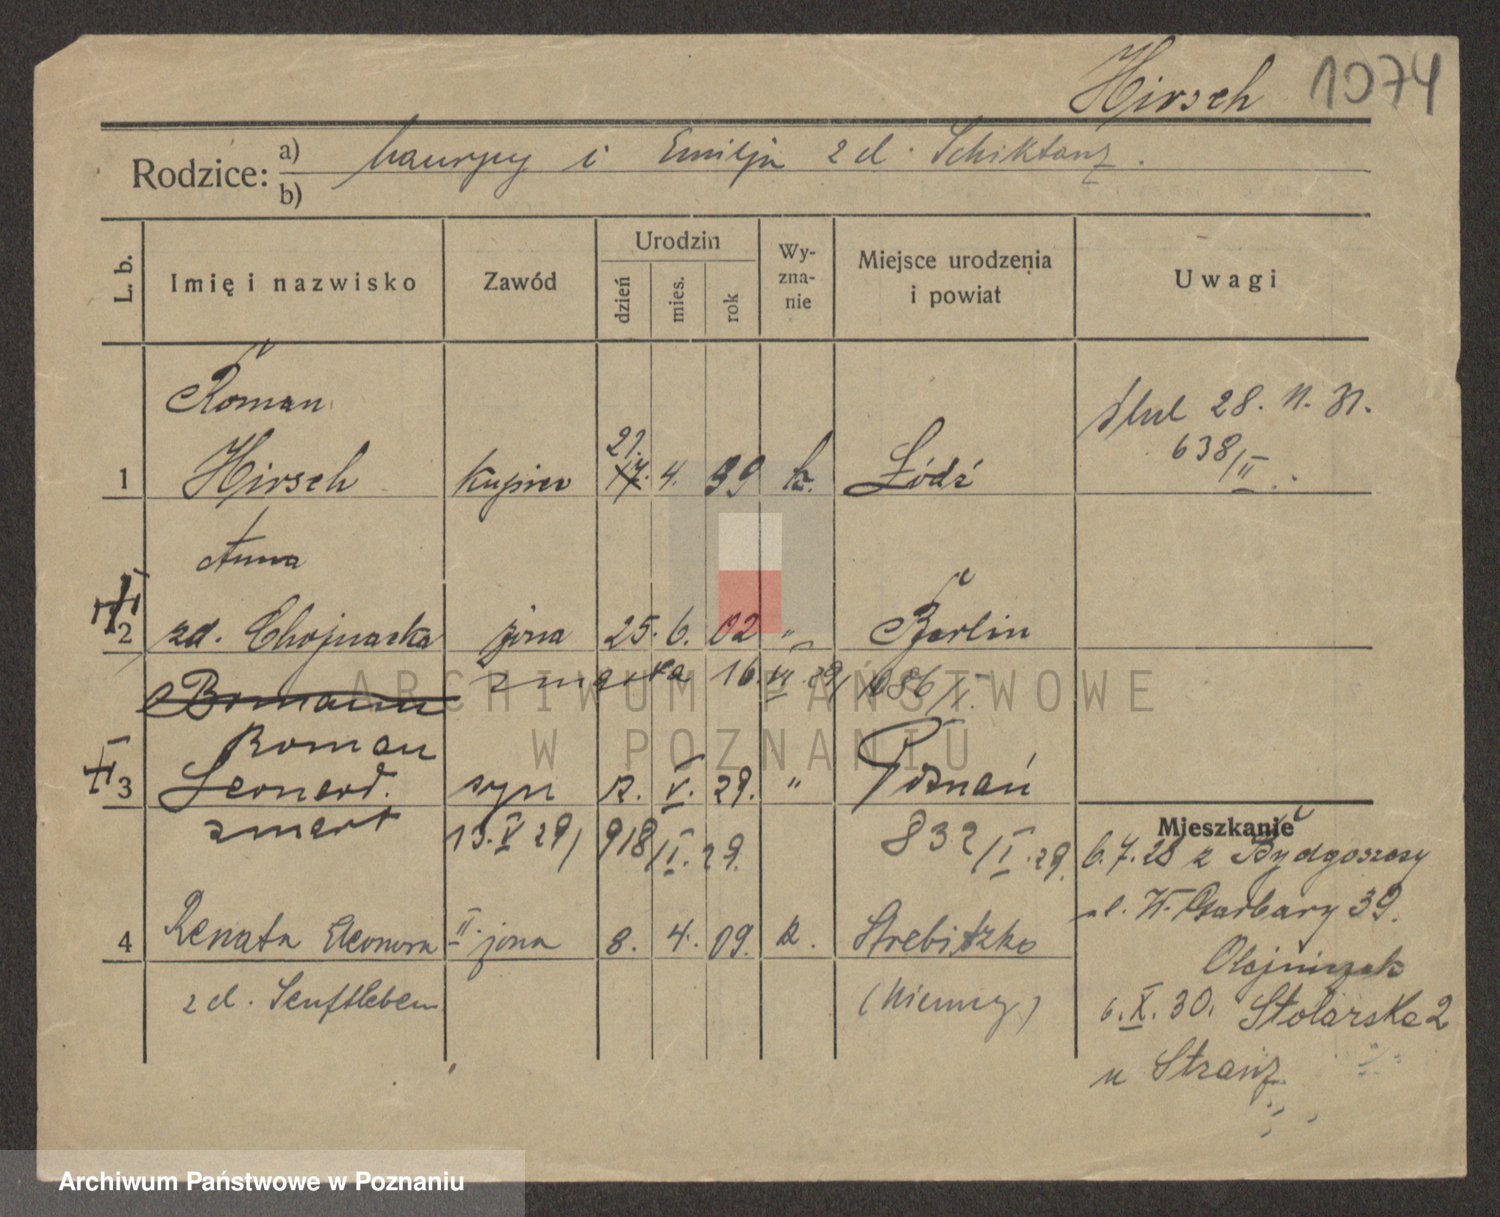 Hirsch 1074
Rodzice: a) Maurycy i Emilja zd. Schiktanz.
b)
L. b. Imię i nazwisko Zawód Urodzin dzień mies. rok Wyznanie Miejsce urodzenia i powiat Uwagi
Roman
1 Hirsch kupiec 21. 17. 4. 99 k. Łódź
ślub 28. II. 31.
638/II
Anna
2 zd. Chojnacka żona 25. 6. 02 " Berlin
zmarła 16. VI. 29/ 1086/I.
Roman
3 Leonard. syn 12. V. 29. " Poznań
zmarł 13. V 29/ 918/II. 29. 832/I. 29.
4 Renata Eleonora II. żona 8. 4. 09. k. Strebitzko
zd. Senftleben (Niemcy)
Mieszkanie
6. 7. 28 z Bydgoszczy
ul. W. Garbary 39.
Olejniczak
6. X. 30. Stolarska 2
u Stranz
ARCHIWUM PAŃSTWOWE
W POZNANIU
Archiwum Państwowe w Poznaniu